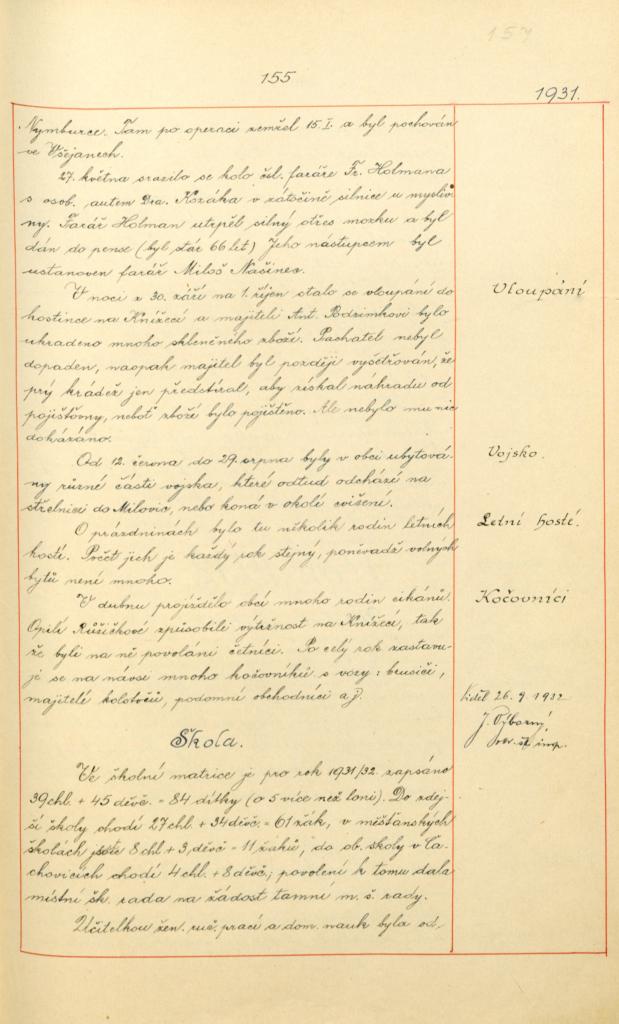 157
155
1931.
Nymburce. Tam po operaci zemřel 15.I. a byl pochován
ve Všejanech.
27. května srazilo se kolo čsl. faráře Fr. Holmana
s osob. autem Dra. Kozáka v zátočině silnice u mysliv
ny. Farář Holman utrpěl silný otřes mozku a byl
dán do pense (byl stár 66 let) Jeho nástupcem byl
ustanoven farář Miloš Mašinex.
V noci z 30. září na 1. říjen stalo se vloupání do
Vloupání
hostince na Knížecí a majiteli Ant. Podzimkovi bylo
ukradeno mnoho skleněného zboží. Pachatel nebyl
dopaden, naopak majitel byl později vyšetřován, že
prý krádež jen předstíral, aby získal náhradu od
pojišťovny, neboť zboží bylo pojištěno. Ale nebylo mu nic
dokázáno.
Od 12. června do 29. srpna byly v obci ubytová-
Vojsko.
ny různé části vojska, které odtud odchází na
střelnici do Milovic, nebo koná v okolí cvičení.
O prázdninách bylo tu několik rodin letních
Letní hosté.
hostí. Počet jich je každý rok stejný, poněvadž volných
bytů není mnoho.
V dubnu projíždělo obcí mnoho rodin cikánů.
Kočovníci
Opilí Růžičkové způsobili výtržnost na Knížecí, tak
že byli na ně povoláni četníci. Po celý rok zastavu-
je se na návsi mnoho kočovníků s vozy: brusiči,
majitelé kolotočů, podomní obchodníci aj.
Viděl 26. 9. 1932
J. Výborný
Škola.
Ve školní matrice je pro rok 1931/32 zapsáno
39 chl. + 45 děvč. = 84 dítky (o 5 více než loni). Do zdej-
ší školy chodí 27 chl. + 34 děvč. = 61 žák, v měšťanských
školách jsou 8 chl + 3 děvč = 11 žáků, do ob. školy v Ča-
chovicích chodí 4 chl. + 8 děvč.; povolení k tomu dala
místní šk. rada na žádost tamní m. š. rady.
Učitelkou žen. ruč. prací a dom. nauk byla od,